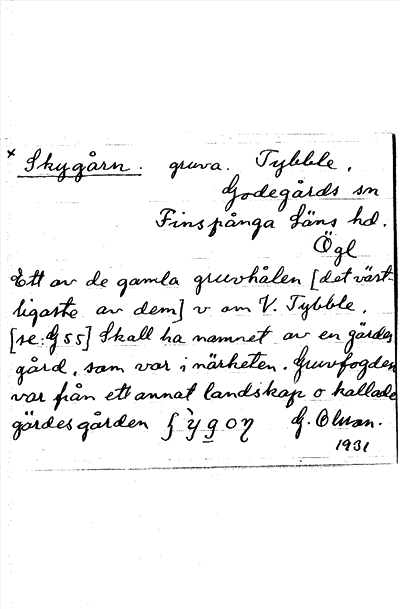 × Skygårn. gruva. Tybble,
Godegårds sn
Finspånga läns hd.
Ögl
Ett av de gamla gruvhålen [det väst-
ligaste av dem] v om V. Tybble.
[se: G 55] Skall ha namnet av en gärdes
gård, som var i närheten. Gruvfogden
var från ett annat landskap o kallade
gärdesgården G. Olsson.
1931